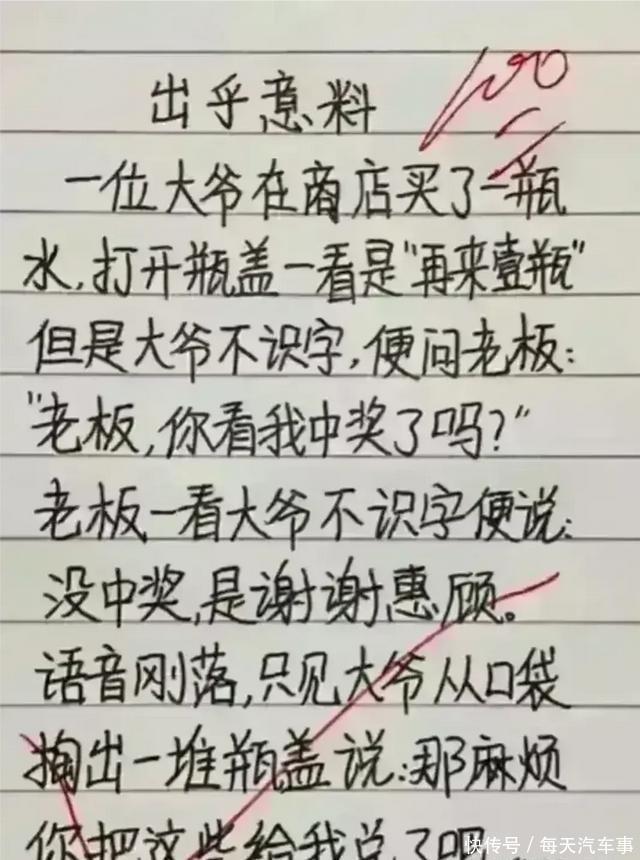 出乎意料
100
一位大爷在商店买了一瓶
水,打开瓶盖一看是"再来壹瓶"
但是大爷不识字,便问老板:
"老板,你看我中奖了吗?"
老板一看大爷不识字便说:
没中奖,是谢谢惠顾。
语音刚落,只见大爷从口袋
掏出一堆瓶盖说:那麻烦
你把这些给我兑了吧
快传号/每天汽车事